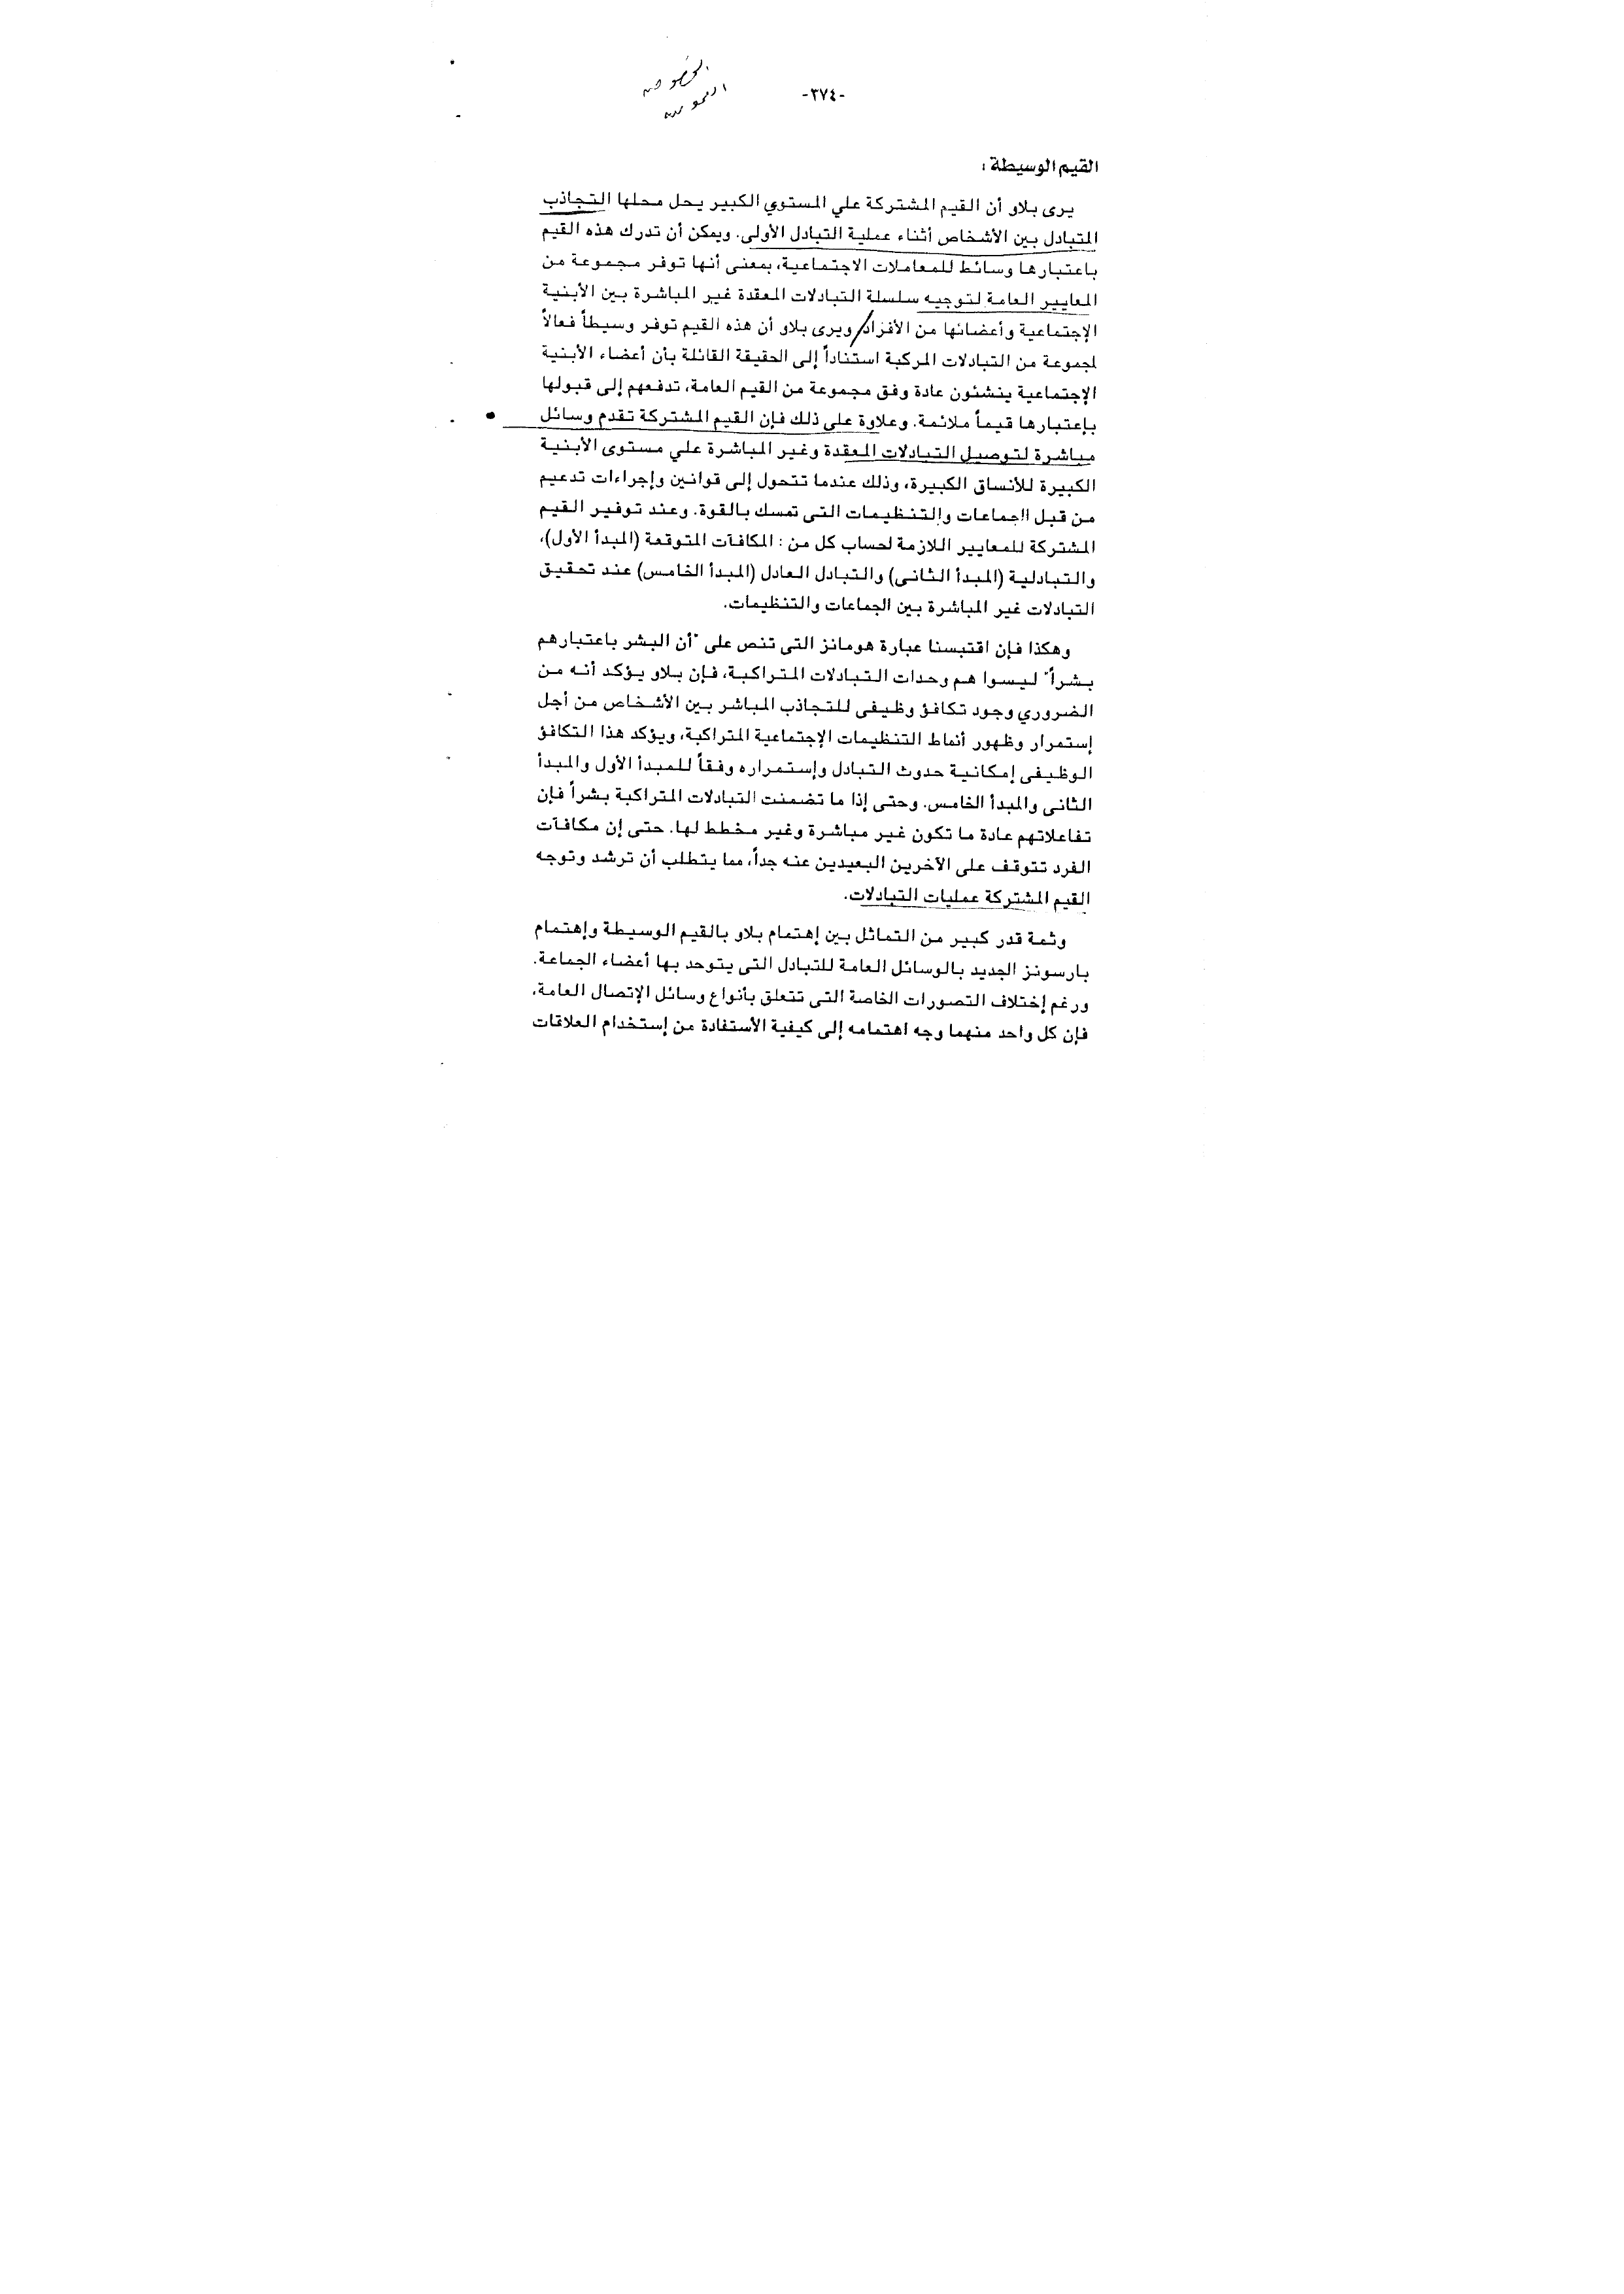 -٢٧٤-
القيم الوسيطة :
يرى بلاو أن القيم المشتركة علي المستوي الكبير يحل محلها التجاذب
المتبادل بين الأشخاص أثناء عملية التبادل الأولى. ويمكن أن تدرك هذه القيم
باعتبارها وسائط للمعاملات الاجتماعية، بمعنى أنها توفر مجموعة من
المعايير العامة لتوجيه سلسلة التبادلات المعقدة غير المباشرة بين الأبنية
الإجتماعية وأعضائها من الأفراد/ ويرى بلاو أن هذه القيم توفر وسيطاً فعالاً
لمجموعة من التبادلات المركبة استناداً إلى الحقيقة القائلة بأن أعضاء الأبنية
الإجتماعية ينشئون عادة وفق مجموعة من القيم العامة، تدفعهم إلى قبولها
بإعتبارها قيماً ملائمة. وعلاوة على ذلك فإن القيم المشتركة تقدم وسائل
مباشرة لتوصيل التبادلات المعقدة وغير المباشرة علي مستوى الأبنية
الكبيرة للأنساق الكبيرة، وذلك عندما تتحول إلى قوانين وإجراءات تدعيم
من قبل الجماعات والتنظيمات التى تمسك بالقوة. وعند توفير القيم
المشتركة للمعايير اللازمة لحساب كل من : المكافآت المتوقعة (المبدأ الأول)،
والتبادلية (المبدأ الثانى) والتبادل العادل (المبدأ الخامس) عند تحقيق
التبادلات غير المباشرة بين الجماعات والتنظيمات.
وهكذا فإن اقتبسنا عبارة هومانز التى تنص على "أن البشر باعتبارهم
بشراً" ليسوا هم وحدات التبادلات المتراكبة، فإن بلاو يؤكد أنه من
الضروري وجود تكافؤ وظيفى للتجاذب المباشر بين الأشخاص من أجل
إستمرار وظهور أنماط التنظيمات الإجتماعية المتراكبة، ويؤكد هذا التكافؤ
الوظيفى إمكانية حدوث التبادل وإستمراره وفقاً للمبدأ الأول والمبدأ
الثانى والمبدأ الخامس. وحتى إذا ما تضمنت التبادلات المتراكبة بشراً فإن
تفاعلاتهم عادة ما تكون غير مباشرة وغير مخطط لها. حتى إن مكافآت
الفرد تتوقف على الآخرين البعيدين عنه جداً، مما يتطلب أن ترشد وتوجه
القيم المشتركة عمليات التبادلات.
وثمة قدر كبير من التماثل بين إهتمام بلاو بالقيم الوسيطة وإهتمام
بارسونز الجديد بالوسائل العامة للتبادل التى يتوحد بها أعضاء الجماعة.
ورغم إختلاف التصورات الخاصة التى تتعلق بأنواع وسائل الإتصال العامة،
فإن كل واحد منهما وجه اهتمامه إلى كيفية الأستفادة من إستخدام العلاقات